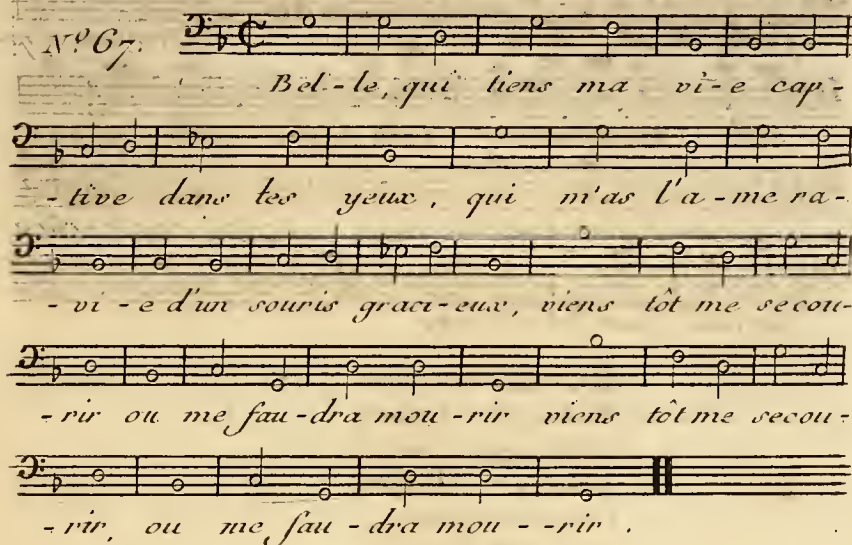 Nº 67.
Bel-le, qui tiens ma vi-e cap-
-tive dans tes yeux, qui m'as l'a-me ra-
-vi-e d'un souris graci-eux, viens tôt me secou-
-rir ou me fau-dra mou-rir viens tôt me secou-
-rir, ou me fau-dra mou--rir.